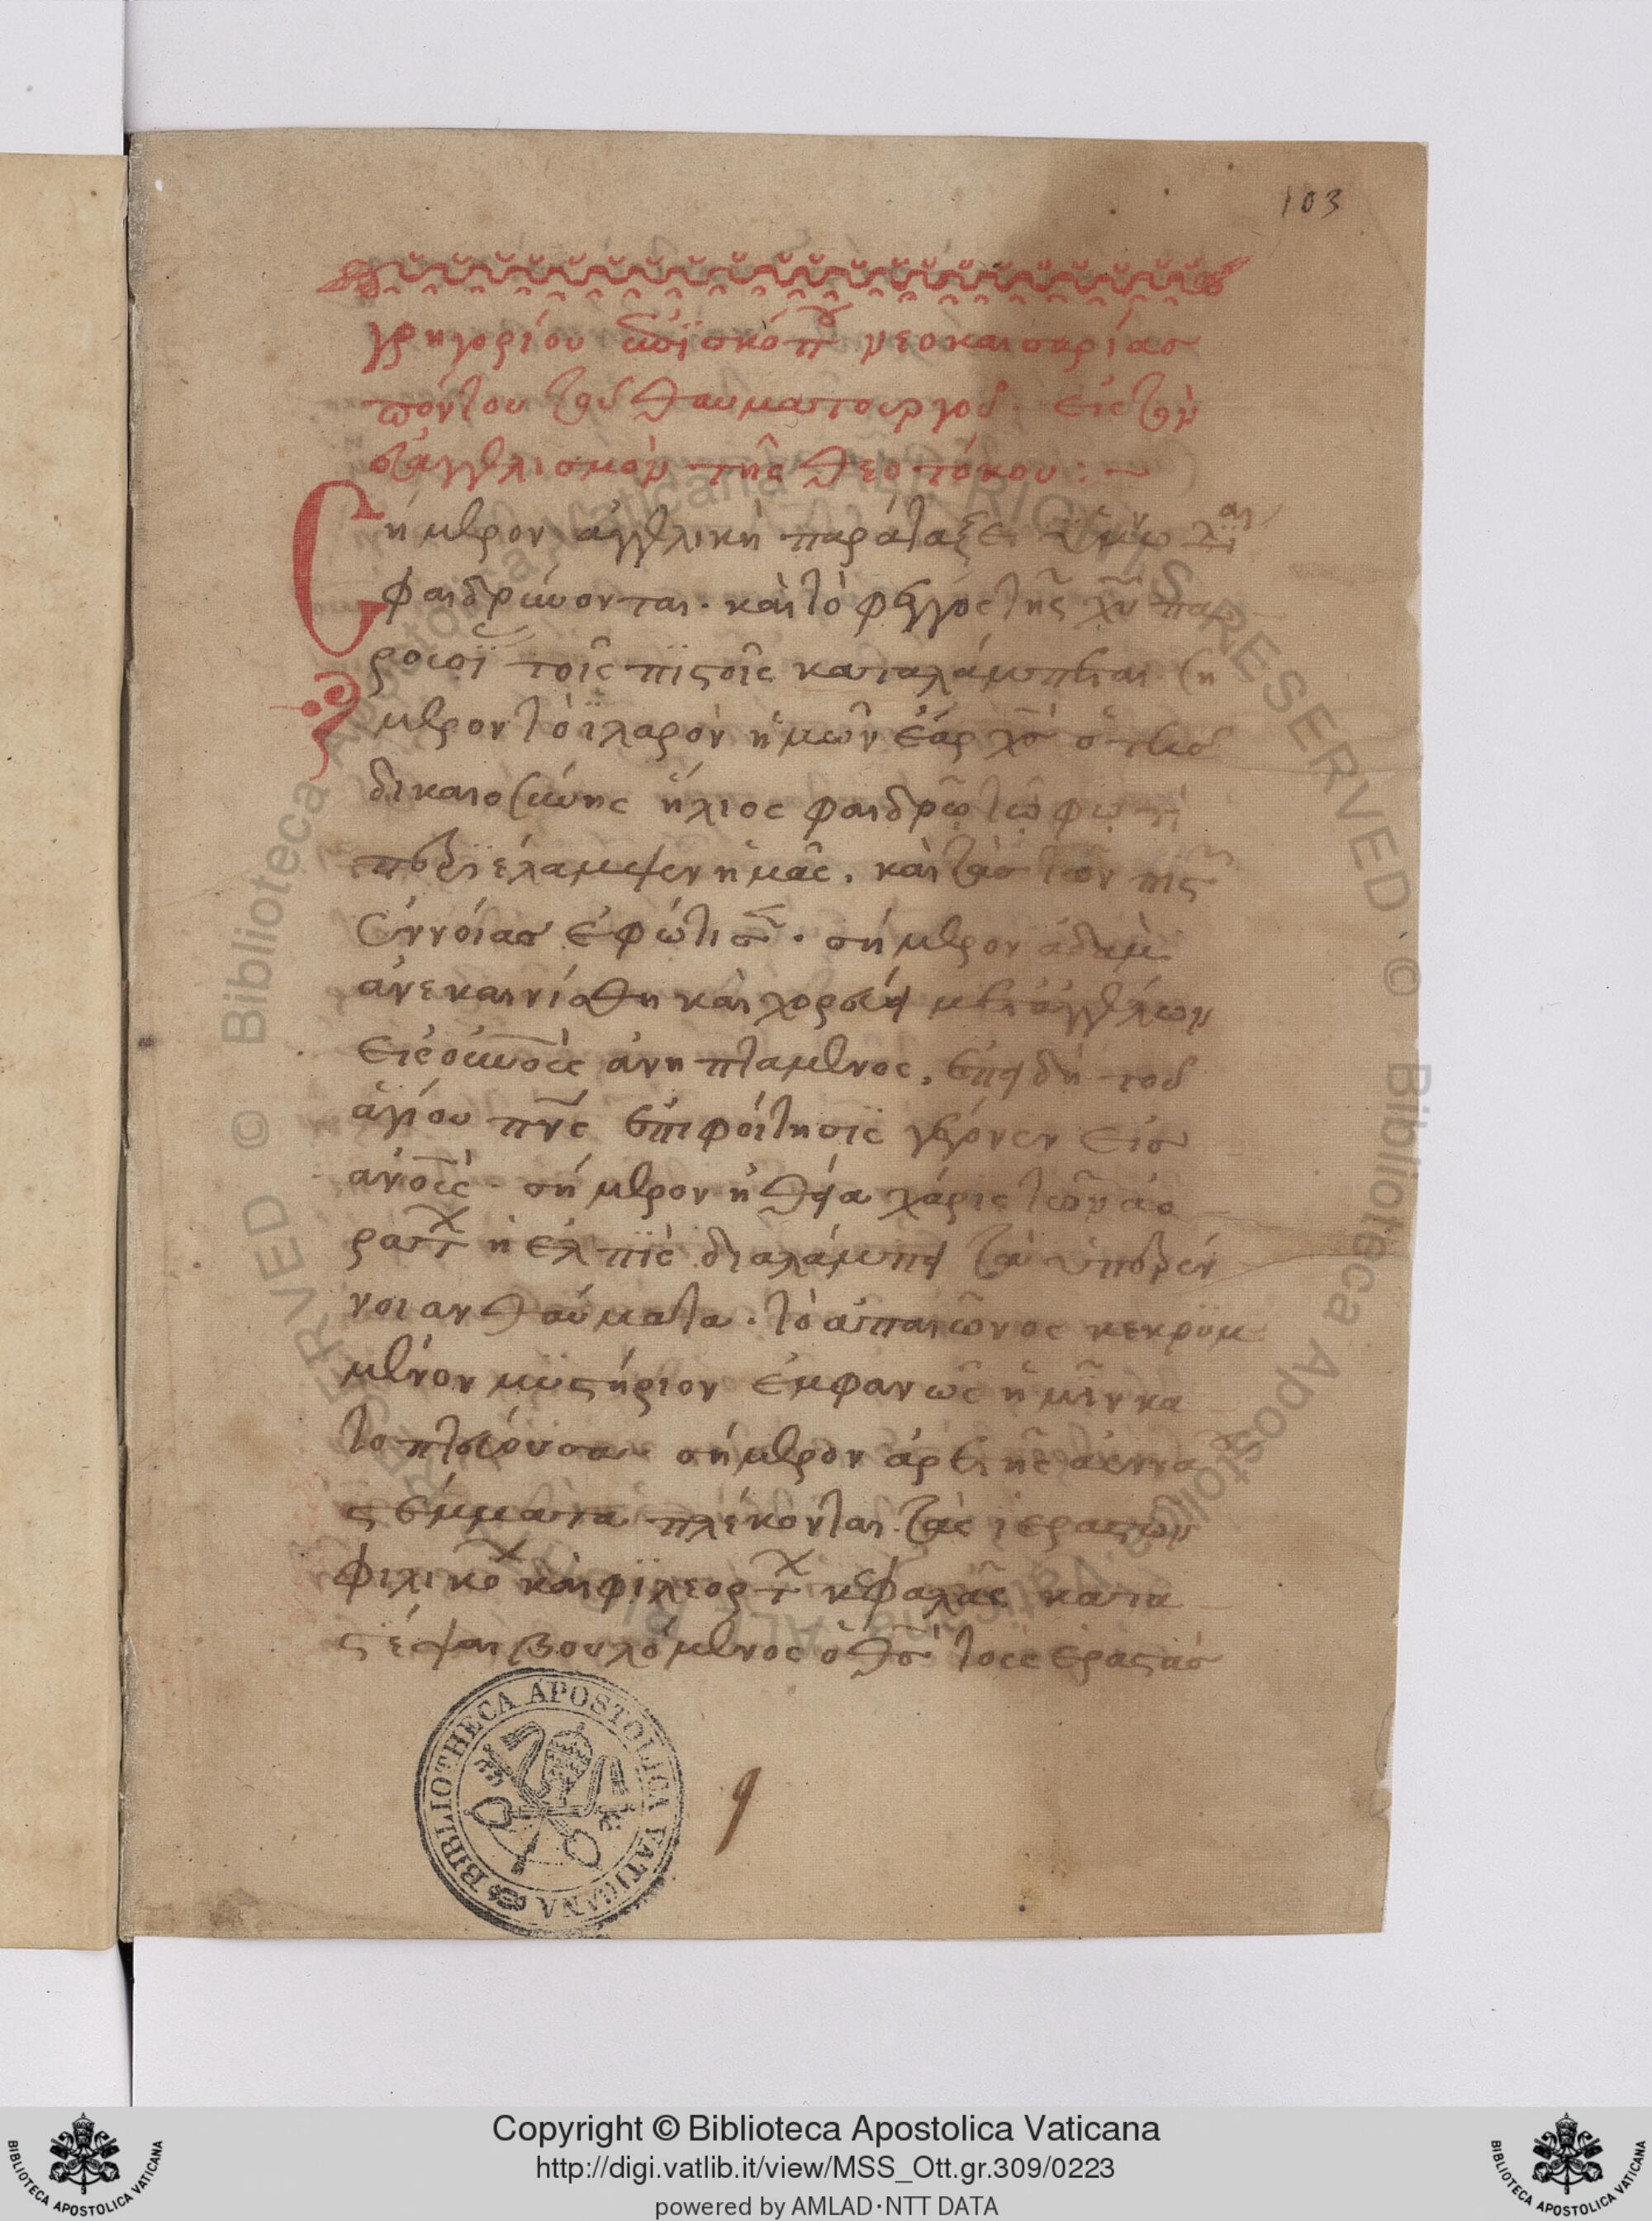 103
γρηγορίου ἐπϊσκόπου νεοκαισαρίασ
πόντου τοῦ θαυματουργοῦ. εἰς τὸν
εὐαγγελισμὸν τῆς θεοτόκου:~
Σήμερον ἀγγελικὴ παράταξει ὑμνωδίαι
φαιδρύνονται. καὶ τὸ φέγγος τῆς χυ πα
ρουσΐ τοῖς πϊςοῖς καταλάμπεται ση
μερον τὸ ϊλαρὸν ἡμῶν ἔαρ χσ ὁ τῆσ
δικαιοσύνης ἥλιος φαιδρῷ τῷ φωτὶ
περιέλαμψεν ἡμᾶς. καὶ τὰσ τῶν πις
ἐννοίασ ἐφώτισ. σήμερον ἀδαμ
ἀνεκαινίσθη καὶ χορεύει μετ ἀγγέλων
εἰς οὐνοὺς ἀνηπταμενος, ἐπειδὴ τοῦ
ἁγίου πνς ἐπιφοίτησϊς γέγονεν εἰσ
ἀνους. σήμερον ἡ θεία χάρις τῶν ἀο
ρατ ἡ ἐλπϊς διαλάμπει τὰ ὑπὲρ ἔν
νοιαν θαύματα. τὸ ἀπαιῶνος κεκρϋμ
μένον μϋςήριον ἐμφανῶς ἡμῖν κα
τοπτεύουσα σήμερον ἀρετῆς ἀεννα
ςέμματα πλέκονται. τὰς ἱερὰς τῶν
φιληκο καὶ φϊλεορτ κεφαλὰς κατα
ςέψαι βουλόμενος ὁ θσ τοὺς ἐραςὰσ
BIBLIOTHECA APOSTOLICA VATICANA
© Biblioteca Apostolica Vaticana. ALL RIGHTS RESERVED.
Copyright © Biblioteca Apostolica Vaticana
http://digi.vatlib.it/view/MSS_Ott.gr.309/0223
powered by AMLAD·NTT DATA
BIBLIOTECA APOSTOLICA VATICANA
BIBLIOTECA APOSTOLICA VATICANA